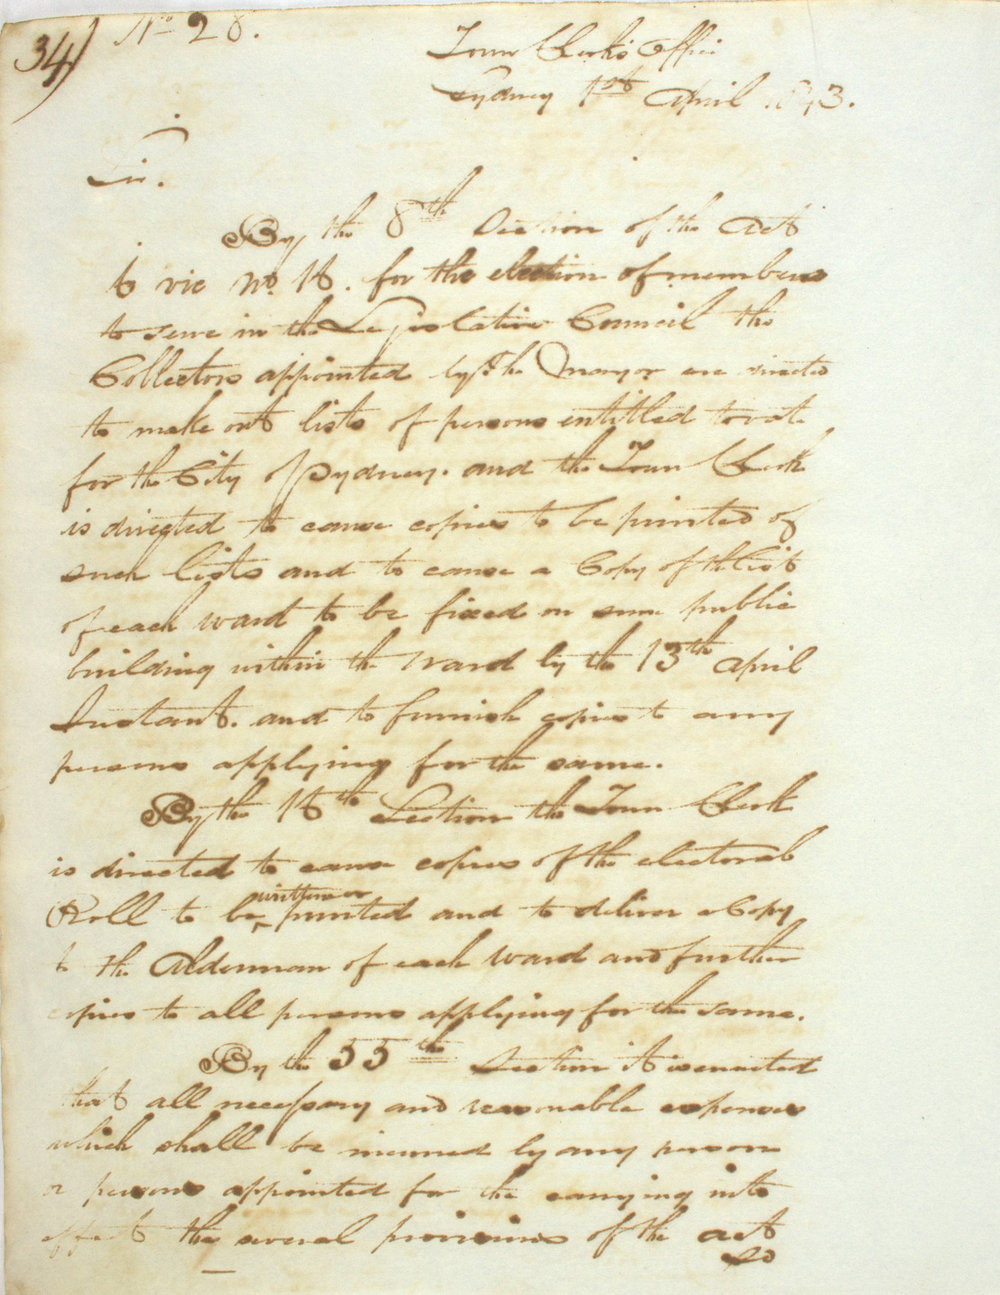 34)
No 28.
Town Clerk's Office
Sydney 1st April 1843.
Sir.
By the 8th Section of the Act
6 vic No. 16. for the election of members
to serve in the Legislative Council the
Collectors appointed by The Mayor are directed
to make out lists of persons entitled to vote
for the City of Sydney. and the Town Clerk
is directed to cause copies to be printed of
such lists and to cause a Copy of the list
of each ward to be fixed on some public
building within the ward by the 13th April
Instant. and to furnish copies to any
persons applying for the same.
By the 16th Section the Town Clerk
is directed to cause copies of the electoral
Roll to be written or printed and to deliver a Copy
to the Alderman of each ward and further
copies to all persons applying for the same.
By the 55th Section it is enacted
that all necessary and reasonable expenses
which shall be incurred by any person
or persons appointed for the carrying into
effect the several provisions of the act